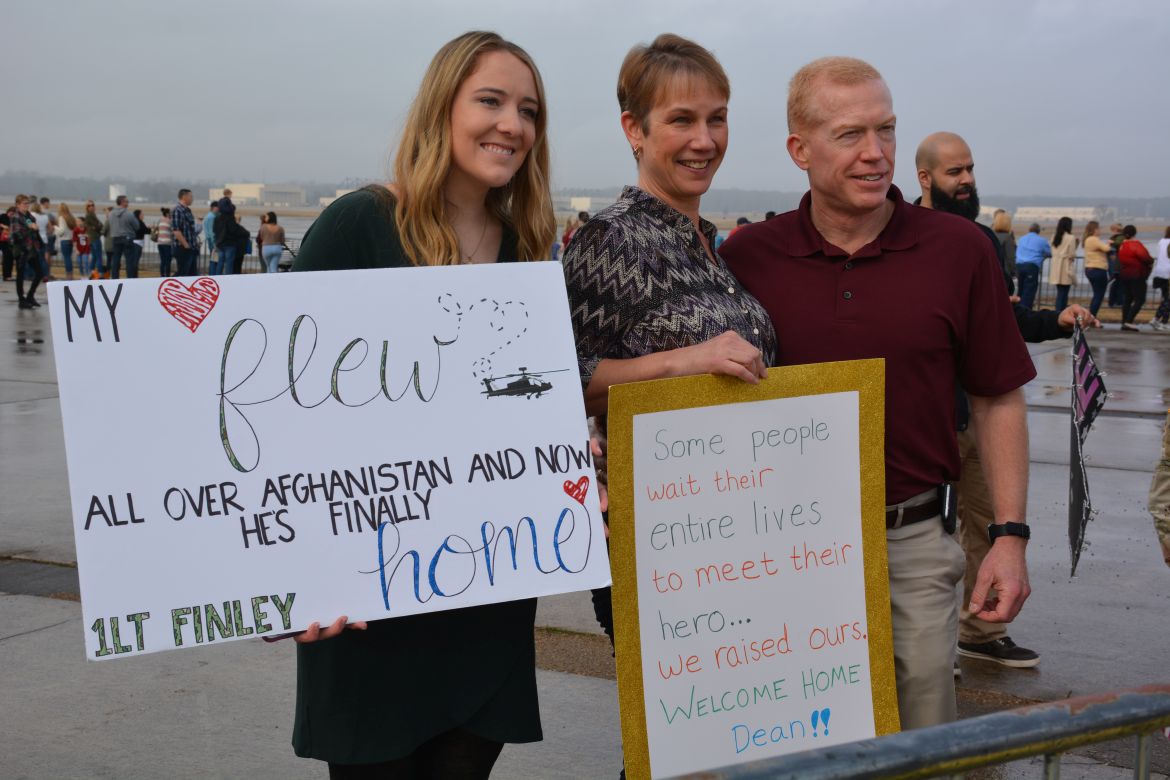 MY
flew
ALL OVER AFGHANISTAN AND NOW
HE'S FINALLY
home
1LT FINLEY
Some people
wait their
entire lives
to meet their
hero...
we raised ours.
WELCOME HOME
Dean!!